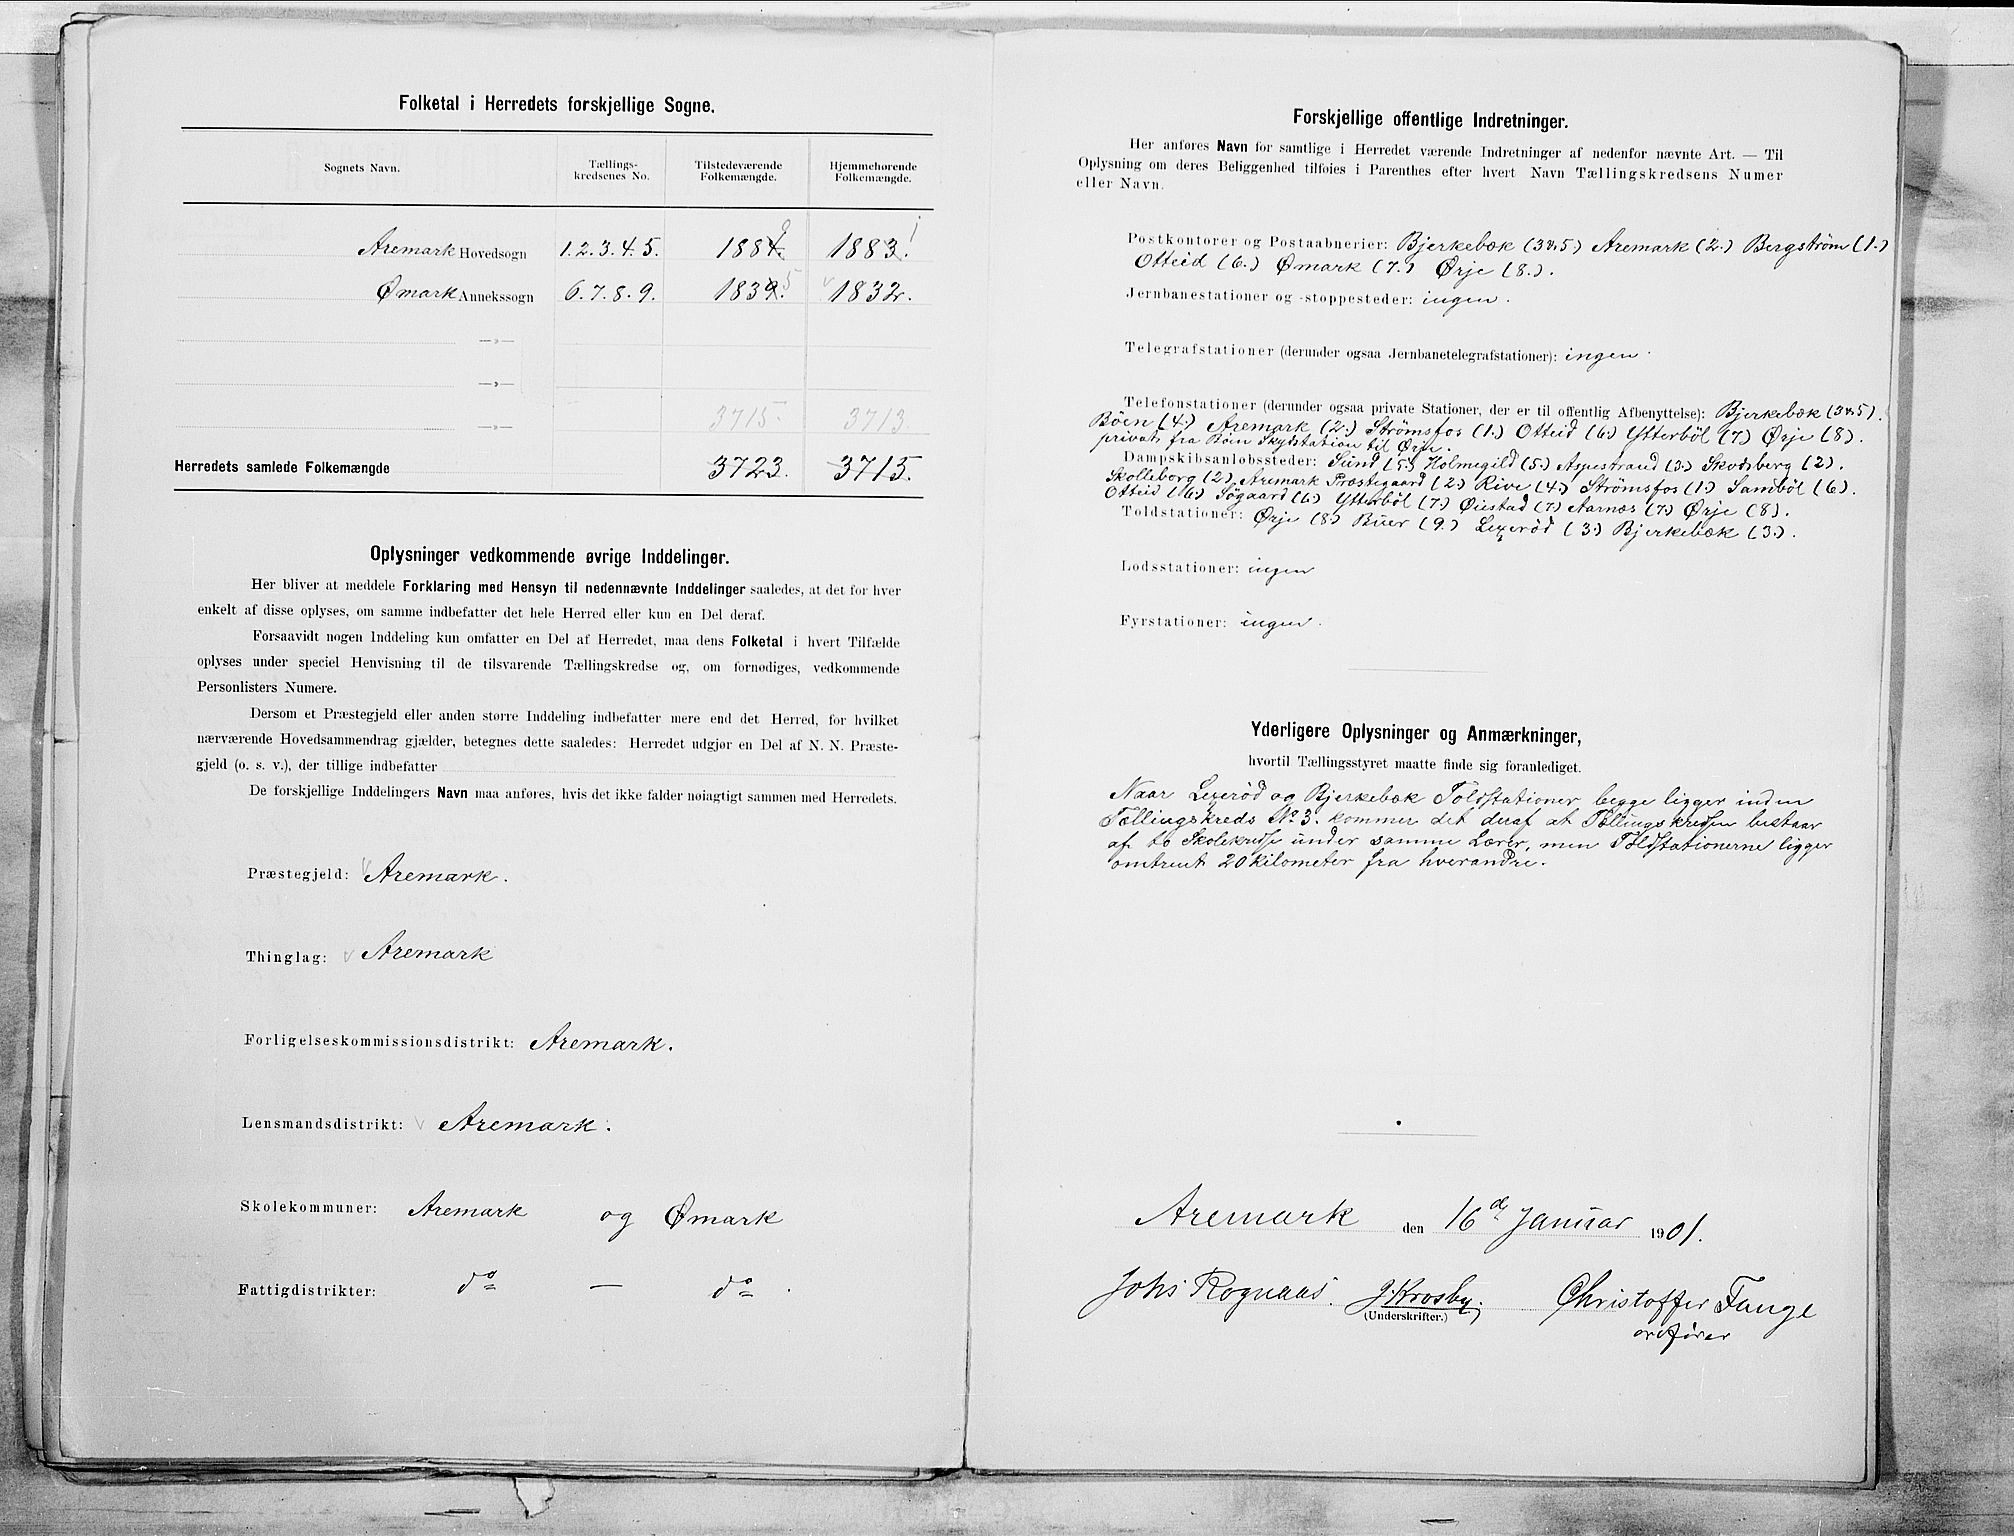 Folketal i Herredets forskjellige Sogne.
Sognets Navn.
Tællings-
kredsenes No.
Tilstedeværende
Folkemængde.
Hjemmehørende
Folkemængde.
Aremark Hovedsogn 1.2.3.4.5. 1884. 1883.
Ømark Annekssogn 6.7.8.9. 1839. 5 1832.
—»—
—»—
3715. 3713
—»—
Herredets samlede Folkemængde 3723. 3715.
Oplysninger vedkommende øvrige Inddelinger.
Her bliver at meddele Forklaring med Hensyn til nedennævnte Inddelinger saaledes, at det for hver
enkelt af disse oplyses, om samme indbefatter det hele Herred eller kun en Del deraf.
Forsaavidt nogen Inddeling kun omfatter en Del af Herredet, maa dens Folketal i hvert Tilfælde
oplyses under speciel Henvisning til de tilsvarende Tællingskredse og, om fornødiges, vedkommende
Personlisters Numere.
Dersom et Præstegjeld eller anden større Inddeling indbefatter mere end det Herred, for hvilket
nærværende Hovedsammendrag gjælder, betegnes dette saaledes: Herredet udgjør en Del af N. N. Præste-
gjeld (o. s. v.), der tillige indbefatter
De forskjellige Inddelingers Navn maa anføres, hvis det ikke falder nøiagtigt sammen med Herredets.
Præstegjeld: Aremark.
Thinglag: Aremark
Forligelseskommissionsdistrikt: Aremark.
Lensmandsdistrikt: Aremark.
Skolekommuner: Aremark og Ømark
Fattigdistrikter: do — do.
Forskjellige offentlige Indretninger.
Her anføres Navn for samtlige i Herredet værende Indretninger af nedenfor nævnte Art. — Til
Oplysning om deres Beliggenhed tilføies i Parenthes efter hvert Navn Tællingskredsens Numer
eller Navn.
Postkontorer og Postaabnerier: Bjerkebæk (3 & 5.) Aremark (2.) Bergström (1.)
Otteid (6.) Ømark (7.) Ørje (8.).
Jernbanestationer og -stoppesteder: ingen.
Telegrafstationer (derunder ogsaa Jernbanetelegrafstationer): ingen
Telefonstationer (derunder ogsaa private Stationer, der er til offentlig Afbenyttelse): Bjerkebæk (3 & 5).
Böen (4.) Aremark (2.) Strömsfos (1.) Otteid (6.) Ytterböl (7) Ørje (8).
privat fra Böen Skydstation til Ørje.
Dampskibsanløbssteder: Sund (5.) Holmegild (5.) Aspestrand (3.) Skodsberg (2).
Skolleborg (2), Aremark Præstegaard (2.) Rive (4.) Strömsfos (1.) Samböl (6).
Otteid (6.) Sögaard (6.) Ytterböl (7) Øiestad (7) Aarnæs (7.) Ørje (8).
Toldstationer: Ørje (8.) Buer (9.) Lexeröd (3.) Bjerkebæk (3.).
Lodsstationer: ingen
Fyrstationer: ingen.
Yderligere Oplysninger og Anmærkninger,
hvortil Tællingsstyret maatte finde sig foranlediget.
Naar Lexeröd og Bjerkebæk Toldstationer begge ligger inden
Tællingskreds No 3. kommer det deraf at Tællingskredsen bestaar
af to Skolekredse under samme Lærer, men Toldstationerne ligger
omtrent 20 kilometer fra hverandre.
Aremark den 16de Januar 1901.
Johs Rognaas. J. Krosby. Christoffer Tange
(Underskrifter.)
ordfører